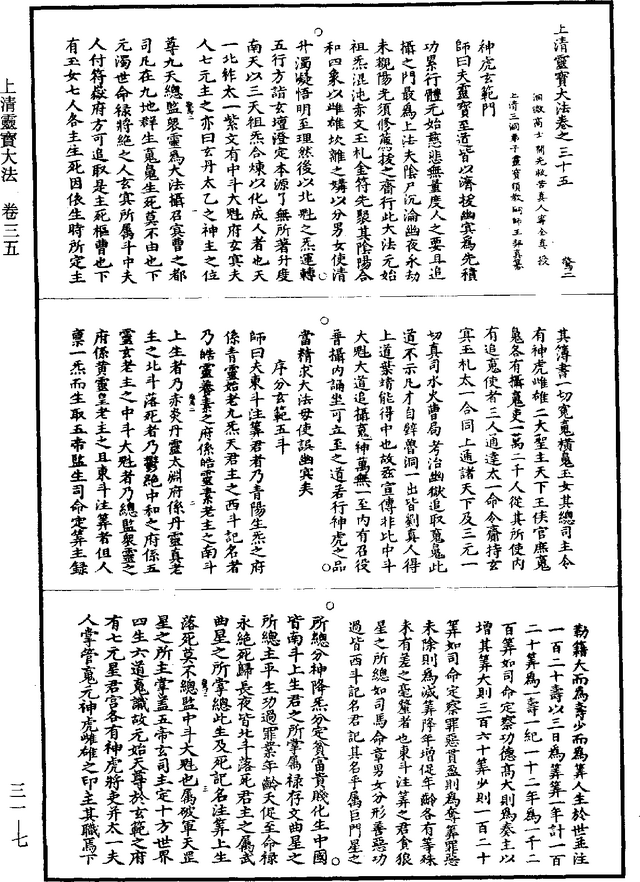 上清靈寶大法卷之三十五
驚二
洞微高士開光救苦真人甯全真授
上清三洞弟子靈寶領教嗣師王契真纂
神虎玄範門
師曰夫靈寶至道皆以濟拔幽冥為先積
功累行體元始慈悲無量度人之要且追
攝之門最為上法夫陰尸沉淪幽夜永劫
未覩陽先須修齋行此大法元始
祖炁混沌赤文玉札金符先娶其陰陽合
和四象以雌雄坎離之媾以分男女使清
升濁凝悟明至理然後以北魁之炁運轉
五行方詣玄壇澄定本源了無所著升度
南天以三天祖炁合煉以化成人者也天
一北帝太一紫文有中斗大魁府玄冥夫
人七元主之亦曰玄丹太乙之神主之位
尊九天總監眾靈為大法攝召冥曹之都
司凡在九地群生寃魂生死莫不由也下
元濁世命祿將絕之人玄冥所屬斗中夫
人付符嶽府方可追取是主死樞曹也下
有玉女七人各主生死因依生時所定主
其簿書一切寃魂橫魂玉女其總司主令
有神虎雌雄二大聖主天下王侯官庶魂
魂各有攝魂吏一萬二千人從其所使內
有追魂使者三人通達太一命令齎持玄
冥玉札太一合同上通諸天下及三元一
切真司水火曹局考治幽獄追取魂魄此
道不示凡才自鎅曾洞一出皆劉真人得
上道葉靖能得中也故茲宣傳非比中斗
大魁大道追攝魂神萬無一至內有召役
普攝內誦坐可立至之道若行神虎之品
當精求大法毋使誤幽冥矣
序分玄範五斗
師曰夫東斗注筭君者乃青陽生炁之府
係青靈始老九炁天君主之西斗記名者
乃皓靈養素之府係皓靈素老主之南斗
上生者乃赤炎丹靈太淵府係丹靈真老
主之北斗落死者乃鬱絕中和之府係五
靈玄老主之中斗大魁者乃總監眾靈之
府係黃靈皇老主之且東斗注筭者但人
禀一炁而生取五帝監生司命定筭主錄
勒籍大而為壽少而為筭人生於世並注
一百二十壽以三日為筭筭一年計一百
二十筭為一壽一紀一十二年為一千二
百筭如司命定察功德高大則為奏主以
增其筭大則三百六十筭少則一百二十
筭如司命定察罪惡貫盈則為奪筭罪惡
未除則為減筭降年增促年齡各有等殊
未有差之毫釐者也東斗注筭之君貪狼
星之所總如司馬命章男女分形善惡功
過皆西斗記名君記其名乎屬巨門星之
所總分神降炁分定貧富貴賤化生中國
皆南斗上生君之所掌屬祿存文曲星之
所總主平生功過罪業年齡天促至命祿
永絕死歸長夜皆北斗落死君主之屬武
曲星之所掌總此生及死記名注筭上生
落死莫不總監中斗大魁也屬破軍天罡
星之所主掌蓋五帝玄司主定十方世界
四生六道魂識故元始天尊於玄範之府
有七元星君宮各有神虎將吏并太一夫
人掌管魂元神虎雌雄之印主其職焉下
上清靈寶大法 卷三五
三一—七